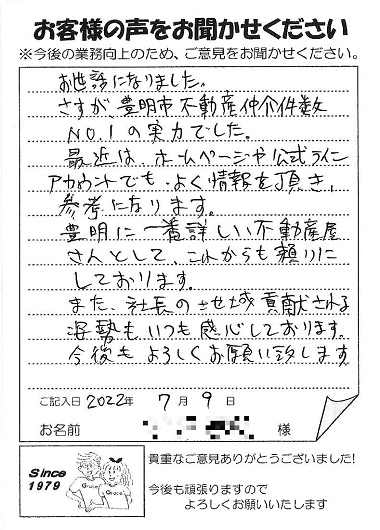 お客様の声をお聞かせください
※今後の業務向上のため、ご意見をお聞かせください。
お世話になりました。
さすが、豊明市不動産仲介件数
NO.1の実力でした。
最近は、ホームページや公式ライン
アカウントでも、よく情報を頂き、
参考になります。
豊明に一番詳しい不動産屋
さんとして、これからも頼りに
しております。
また、社長の地域貢献される
姿勢もいつも感心しております。
今後もよろしくお願い致します
ご記入日 2022年 7月 9日
お名前 様
Since
1979
Grace
Grace
貴重なご意見ありがとうございました!
今後も頑張りますので
よろしくお願いいたします